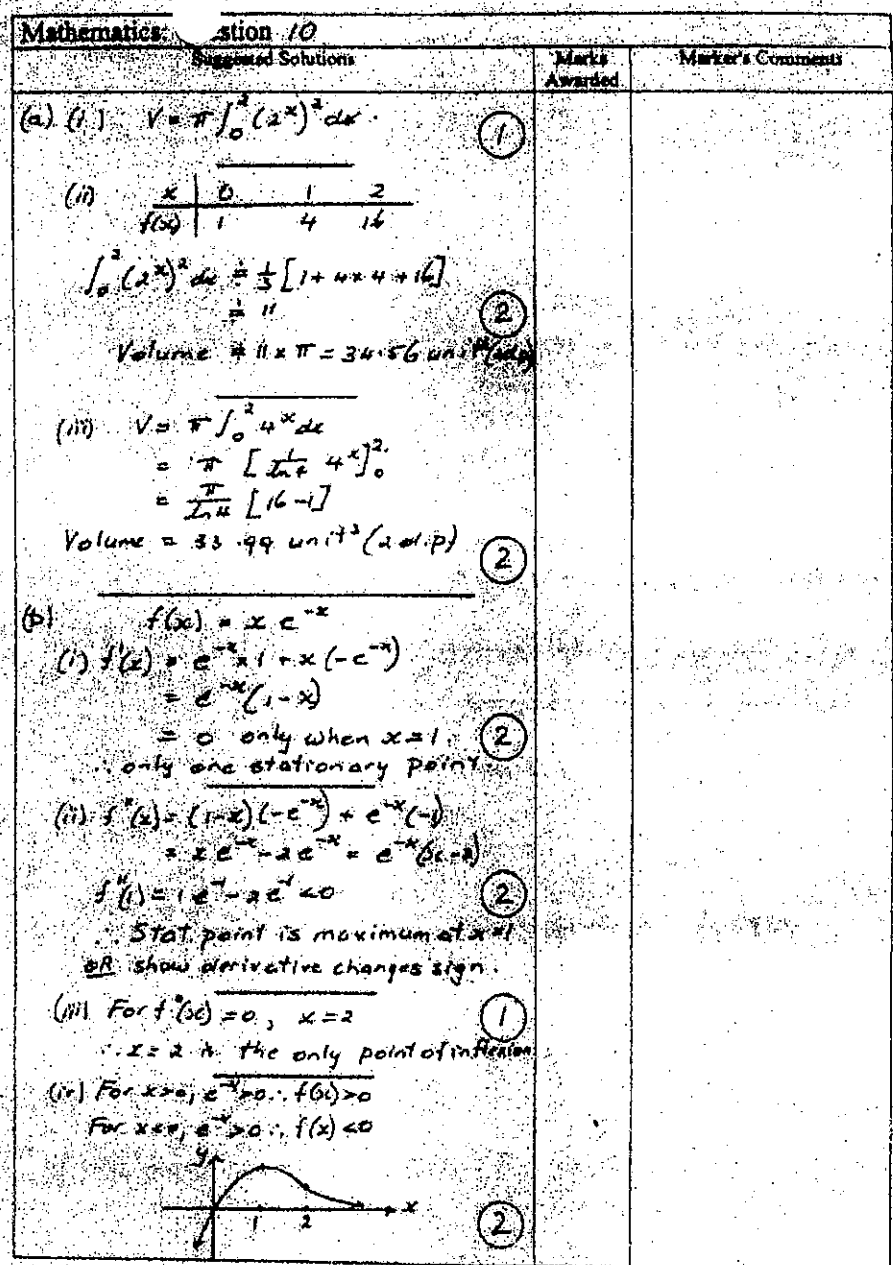 Mathematics: stion 10
Suggested Solutions
Marks Awarded
Marker's Comments
(a) (i) V = π∫₀² (2ˣ)² dx. (1)
(ii) x | 0 1 2
f(x) | 1 4 16
∫₀² (2ˣ)² dx ≑ 1/3 [1 + 4 × 4 + 16]
≑ 11 (2)
Volume ≑ 11 × π = 34.56 unit³ (2dp)
(iii) V = π∫₀² 4ˣ dx
= π [1/ln4 4ˣ]₀²
= π/ln4 [16 - 1]
Volume = 33.99 unit³ (2 d.p) (2)
(b) f(x) = x e⁻ˣ
(i) f'(x) = e⁻ˣ × 1 + x(-e⁻ˣ)
= e⁻ˣ(1 - x)
= 0 only when x = 1. (2)
∴ only one stationary point.
(ii) f"(x) = (1-x)(-e⁻ˣ) + e⁻ˣ(-1)
= x e⁻ˣ - 2e⁻ˣ = e⁻ˣ(x-2)
f"(1) = 1 e⁻¹ - 2e⁻¹ < 0 (2)
∴ Stat point is maximum at x=1
OR show derivative changes sign.
(iii) For f"(x) = 0, x = 2 (1)
∴ x = 2 is the only point of inflexion
(iv) For x>0, e⁻ˣ>0 ∴ f(x)>0
For x<0, e⁻ˣ>0 ∴ f(x)<0
y
x
1 2 (2)